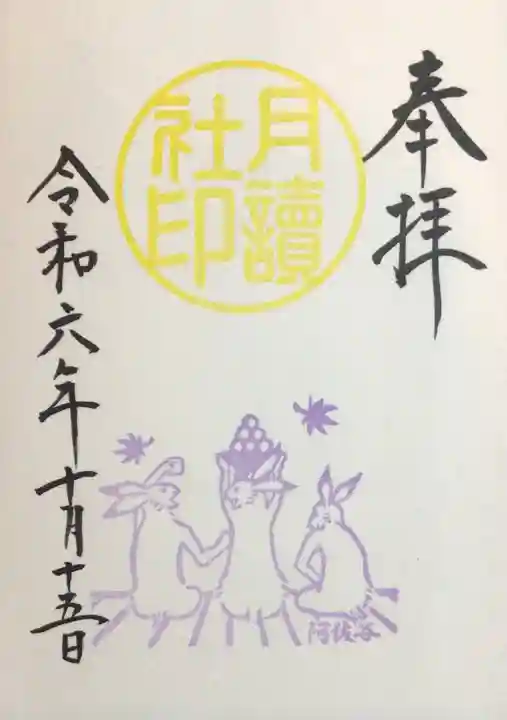 奉拝
月讀
社印
令和六年十月十五日
阿佐谷